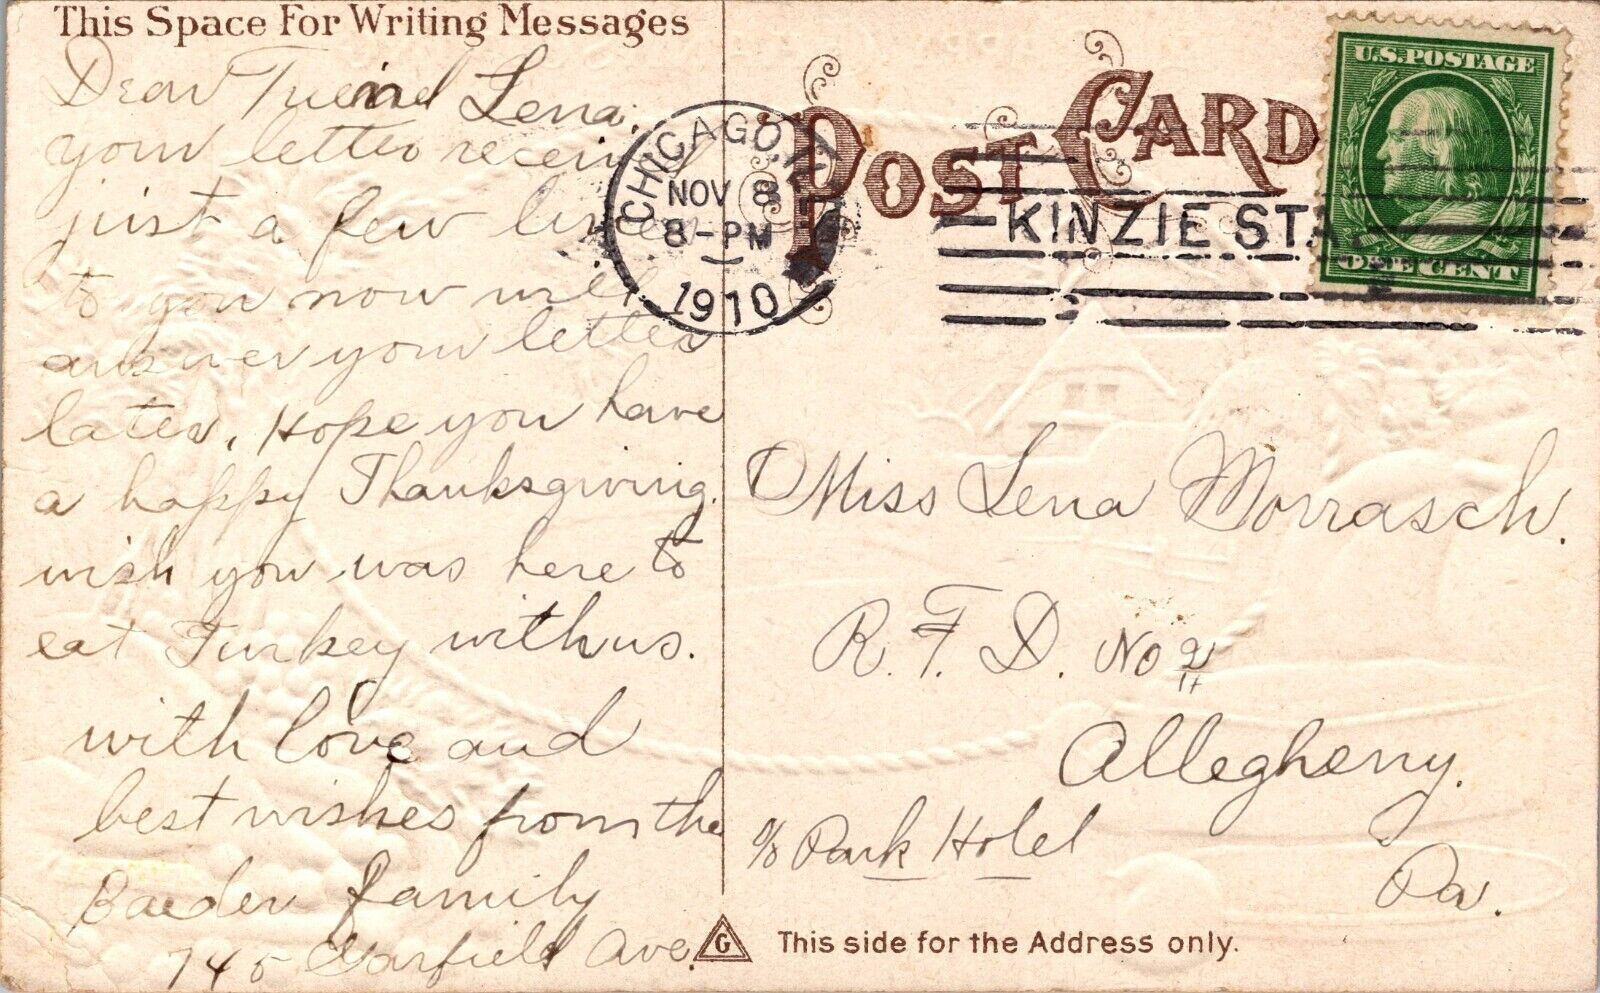 This Space For Writing Messages
Dear Friend Lena,
your letter receive
just a few lines
to you now will
answer your letter
later. Hope you have
a happy Thanksgiving.
wish you was here to
eat Turkey with us.
with love and
best wishes from the
Baeder family
745 Garfield Ave.
POST CARD
CHICAGO, ILL.
NOV 8
8-PM
1910
KINZIE STA.
U.S. POSTAGE
ONE CENT
Miss Lena Morrasch.
R. F. D. No
Allegheny.
c/o Park Hotel
Pa.
G
This side for the Address only.